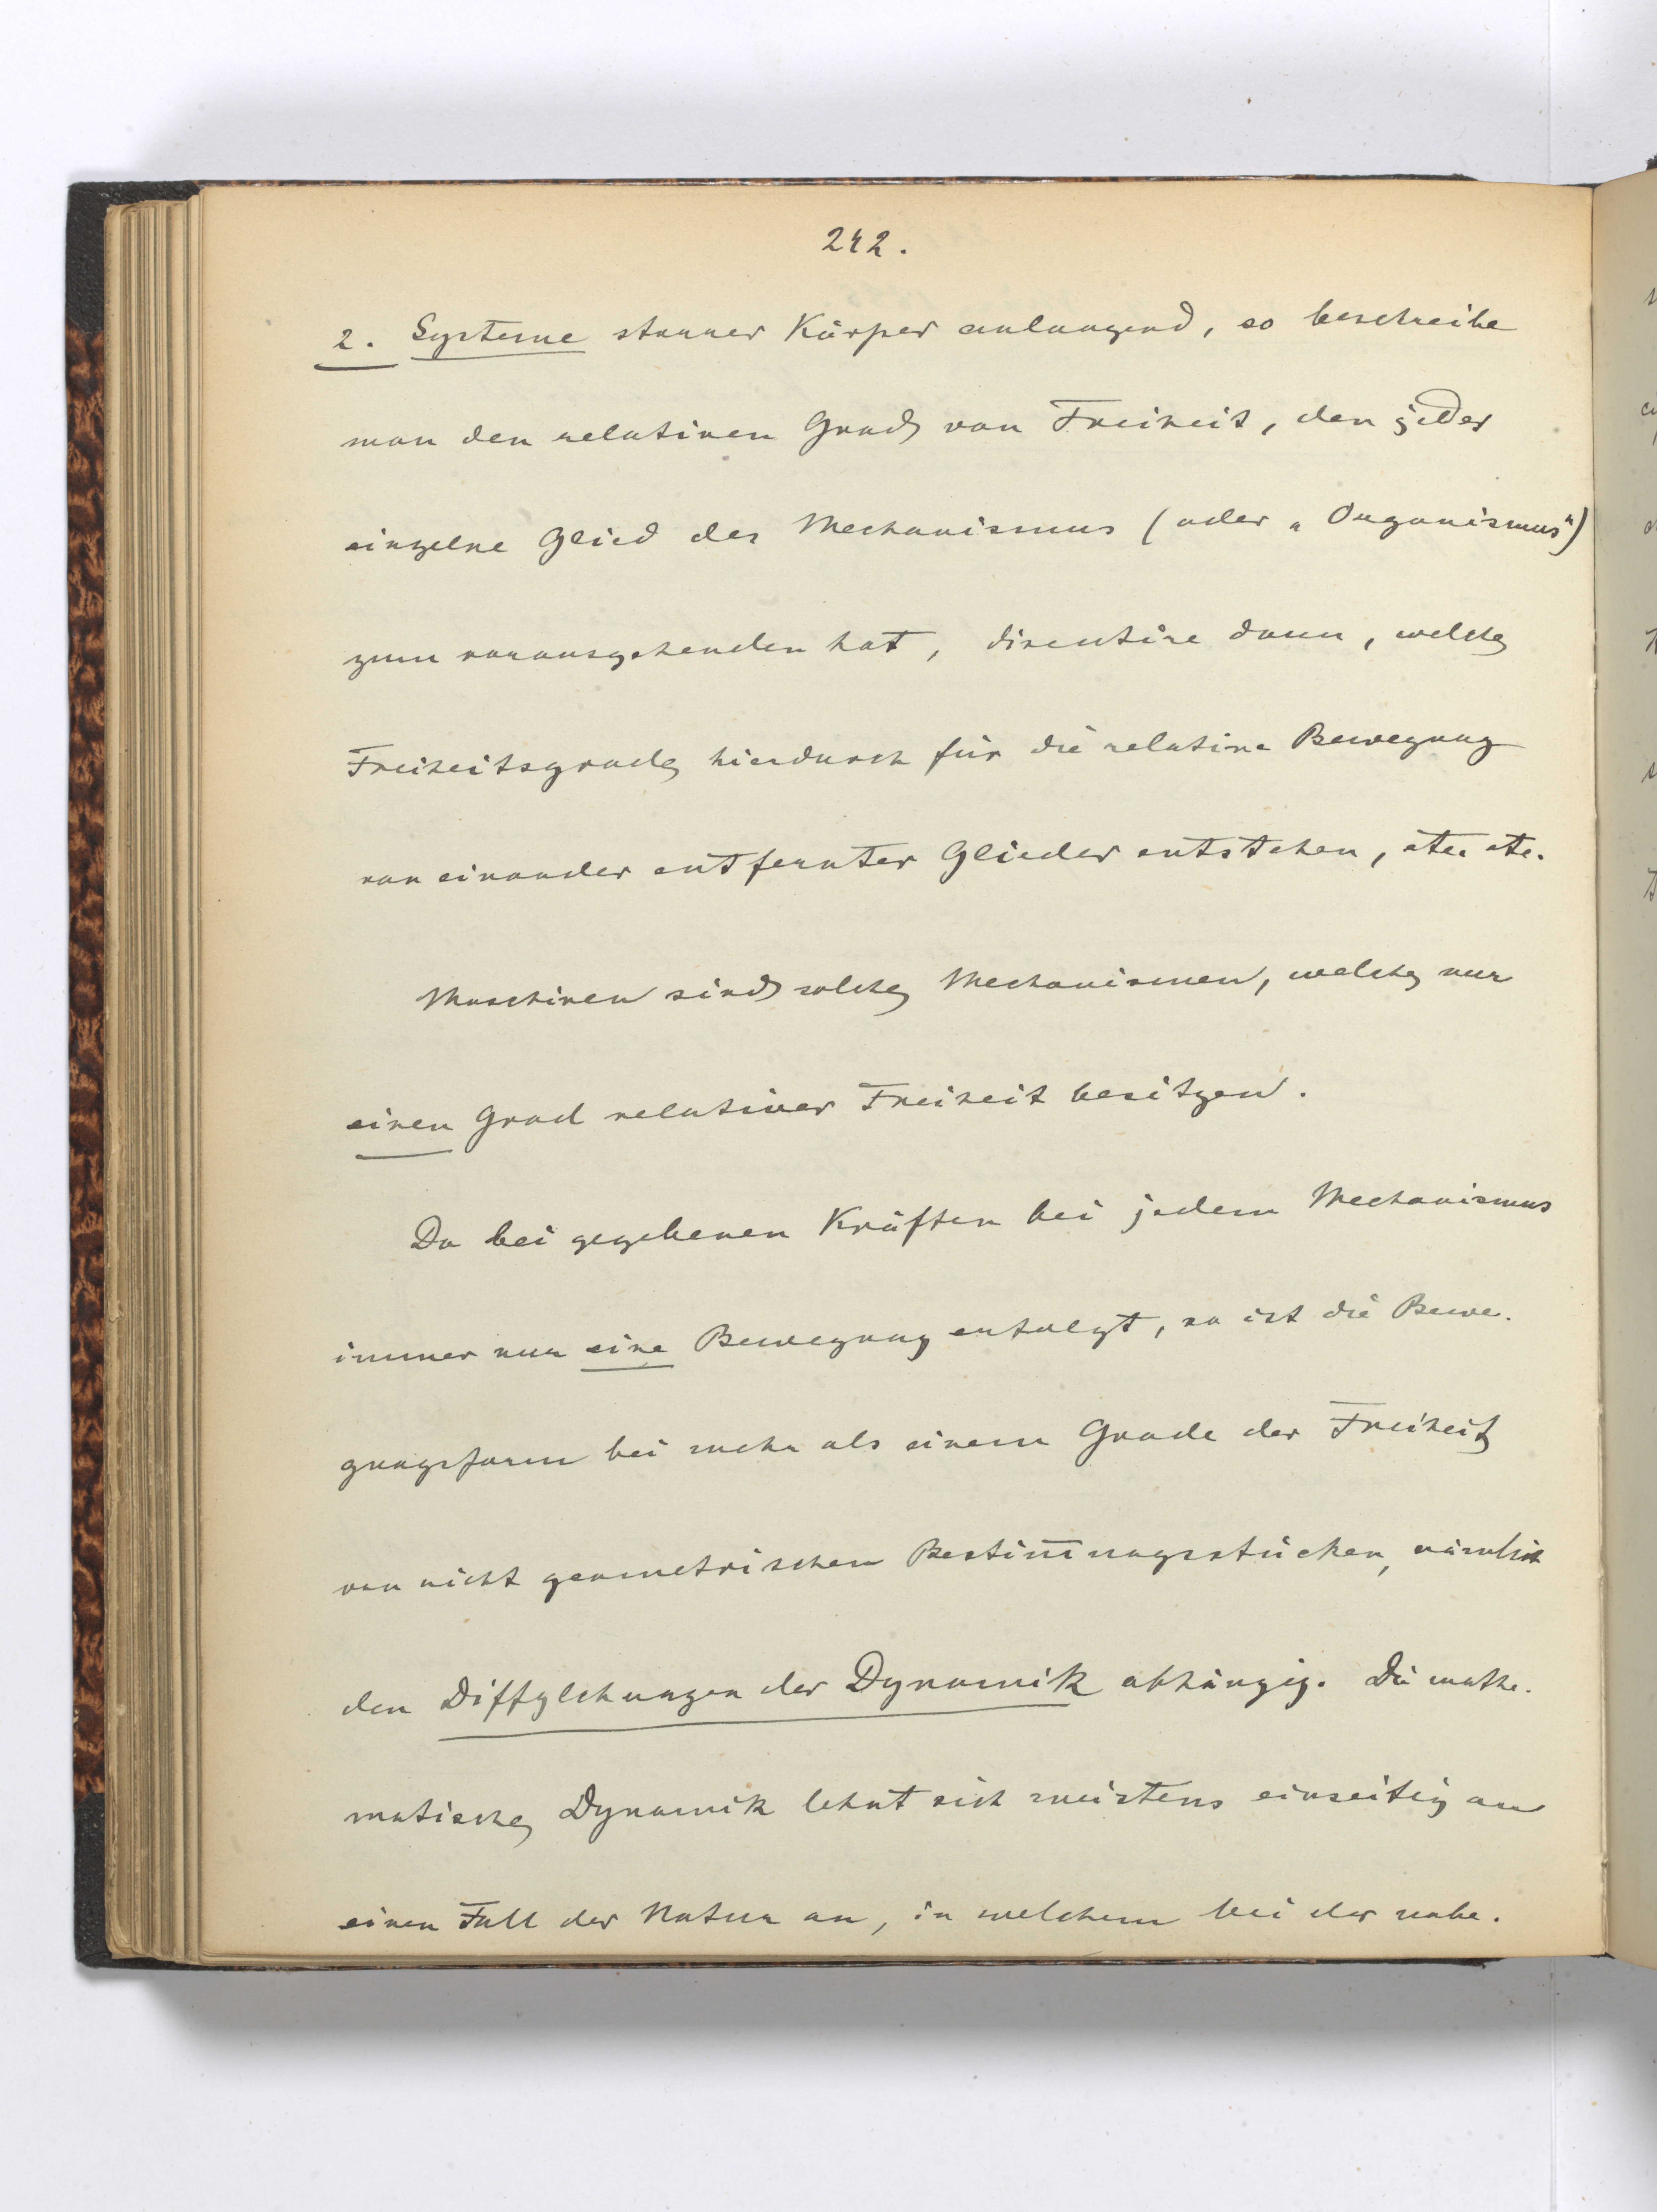 242.
2. Systeme starrer Körper anlangend, so beschreibe
man den relativen Grad von Freiheit, den jedes
einzelne Glied des Mechanismus (oder „Organismus“)
zum vorausgehenden hat, discutire dann, welche
Freiheitsgrade hierdurch für die relative Bewegung
von einander entfernter Glieder entstehen, etc. etc.
Maschinen sind solche Mechanismen, welche nur
einen Grad relativer Freiheit besitzen.
Da bei gegebenen Kräften bei jedem Mechanismus
immer nur eine Bewegung erfolgt, so ist die Bewe-
gungsform bei mehr als einem Grade der Freiheit
von nicht geometrischen Bestim̅ungsstücken, nämlich
den Diffglchungen der Dynamik abhängig. Die mathe-
matische Dynamik lehnt sich meistens einseitig an
einen Fall der Natur an, in welchem bei der